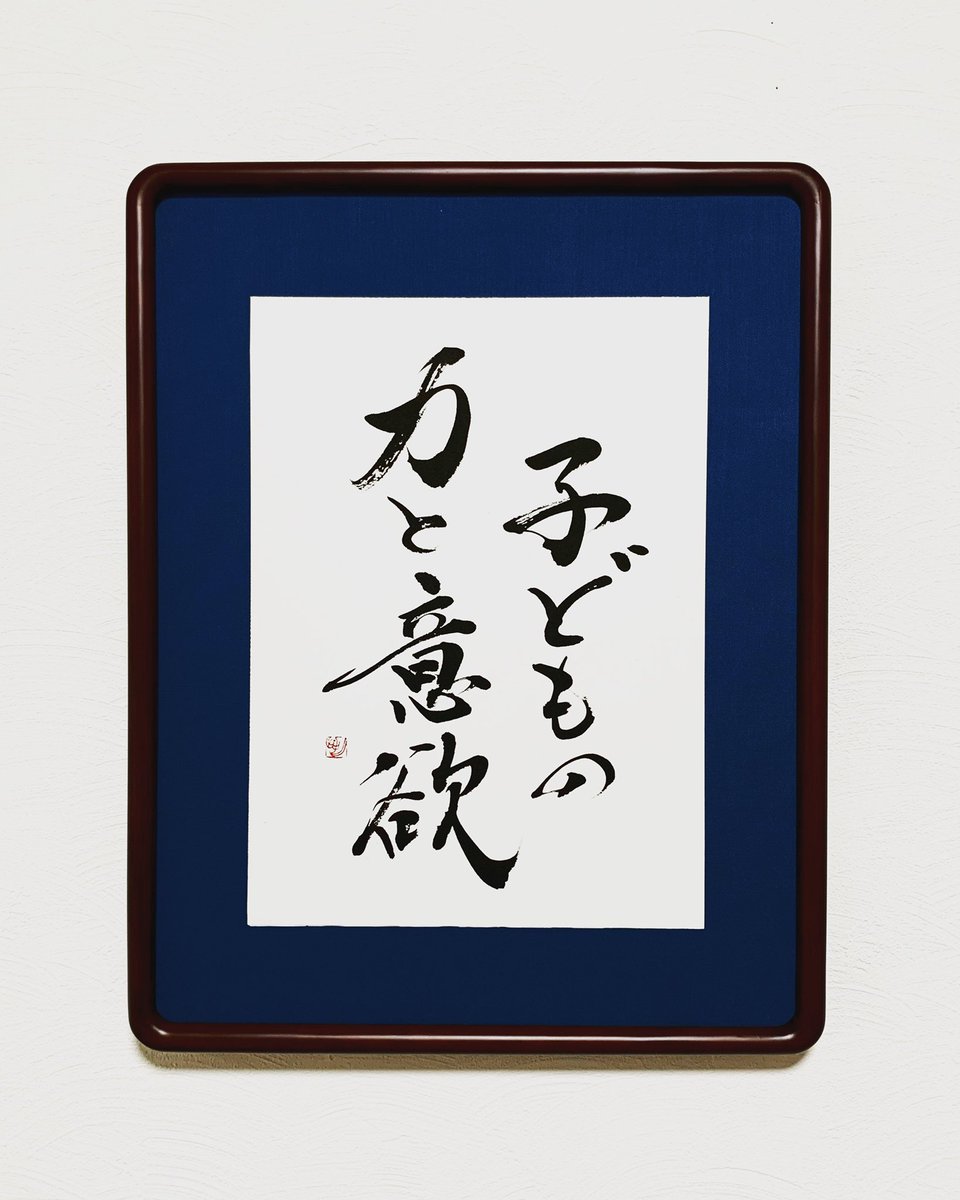 子どもの
力と意欲